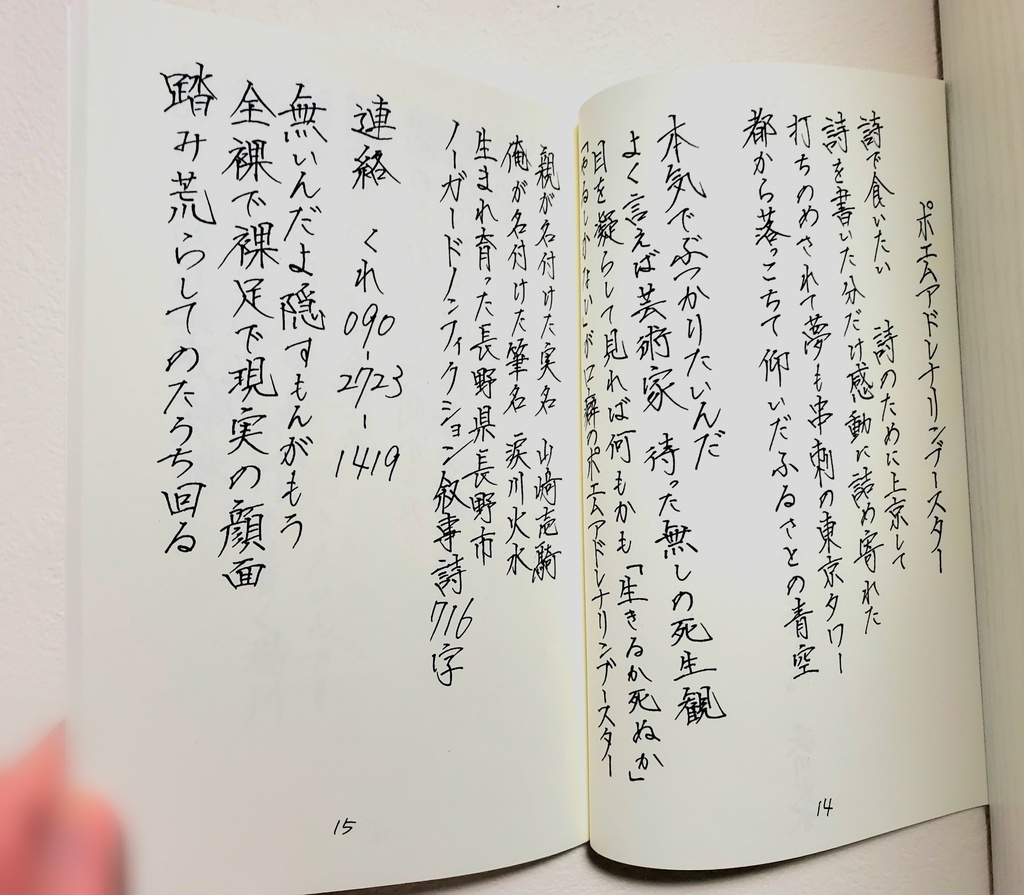 ポエムアドレナリンブースター
詩で食いたい　詩のために上京して
詩を書いた分だけ感動に詰め寄れた
打ちのめされて夢も串刺の東京タワー
都から落っこちて仰いだふるさとの青空
本気でぶつかりたいんだ
よく言えば芸術家　待った無しの死生観
目を凝らして見れば何もかも「生きるか死ぬか」
「やるしかない」が口癖のポエムアドレナリンブースター
14
親が名付けた実名　山崎壱騎
俺が名付けた筆名　涙川火水
生まれ育った長野県長野市
ノーガードノンフィクション叙事詩716字
連絡　くれ090-2723-1419
無いんだよ隠すもんがもう
全裸で裸足で現実の顔面
踏み荒らしてのたうち回る
15